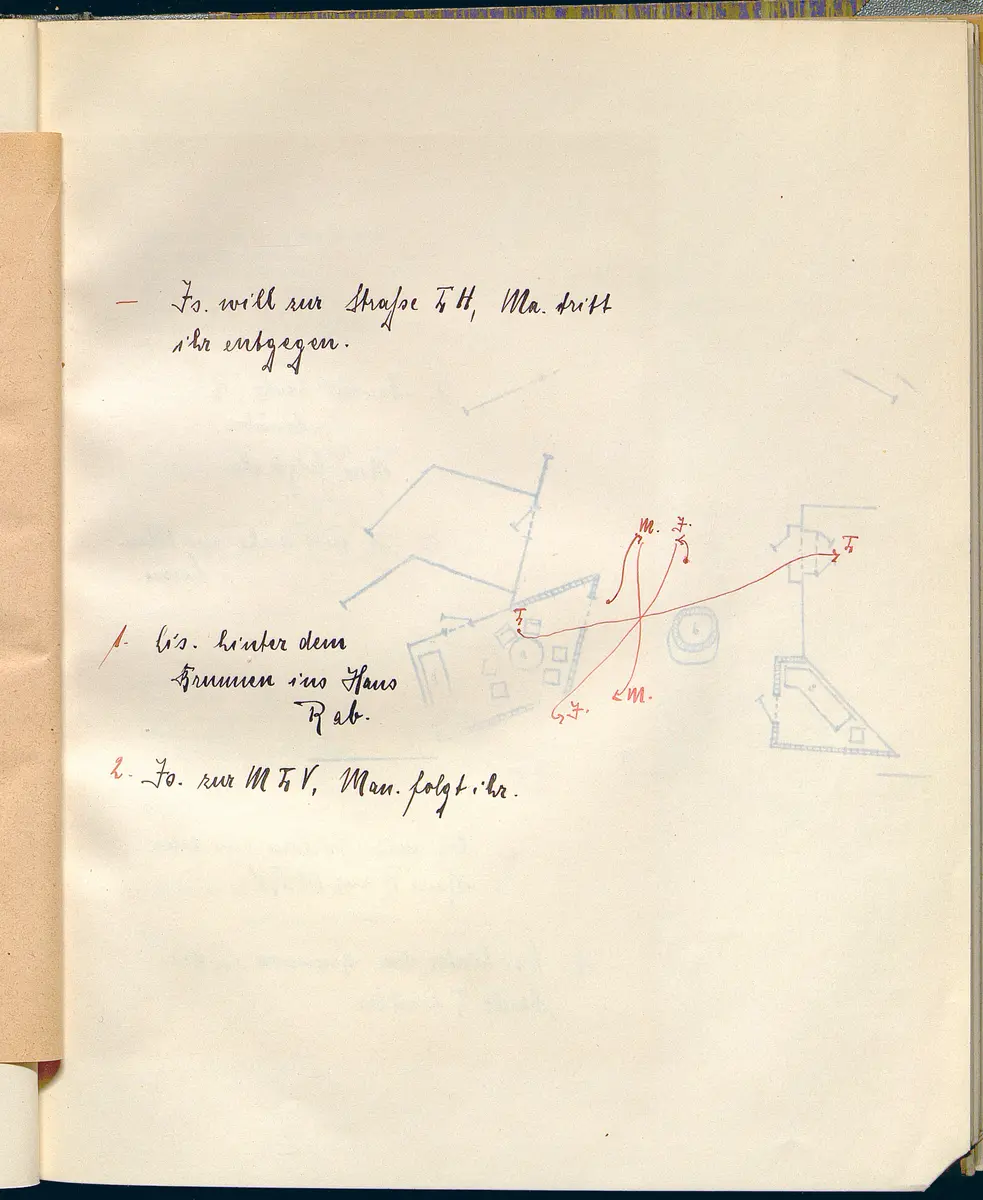 — Js. will zur Straße Li H, Ma. tritt
ihr entgegen.
M. J.
Li
Li
1. Lis. hinter dem
Brunnen ins Haus
Rab.
M.
J.
2. Js. zur M Li V, Man. folgt ihr.